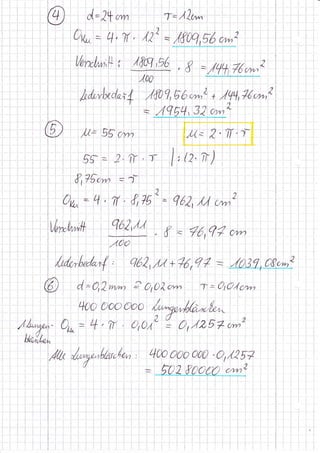 ④ d=24cm r=12cm
O_Ku = 4 · π · 12² = 1809,56 cm²
Verschnitt: 1809,56/100 · 8 = 144,76 cm²
Lederbedarf 1809,56 cm² + 144,76 cm²
= 1954,32 cm²
⑤ u = 55 cm u = 2 · π · r
55 = 2 · π · r |:(2·π)
8,75cm = r
O_Ku = 4 · π · 8,75² = 962,11 cm²
Verschnitt 962,11/100 · 8 = 76,97 cm
Lederbedarf: 962,11 + 76,97 = 1039,08 cm²
⑥ d=0,2mm ≙ 0,02cm r=0,01cm
400 000 000 Lungenbläschen
1 Lungen- O_Ku = 4 · π · 0,01² = 0,1257 cm²
bläschen
Alle Lungenbläschen: 400 000 000 · 0,1257
= 50280000 cm²